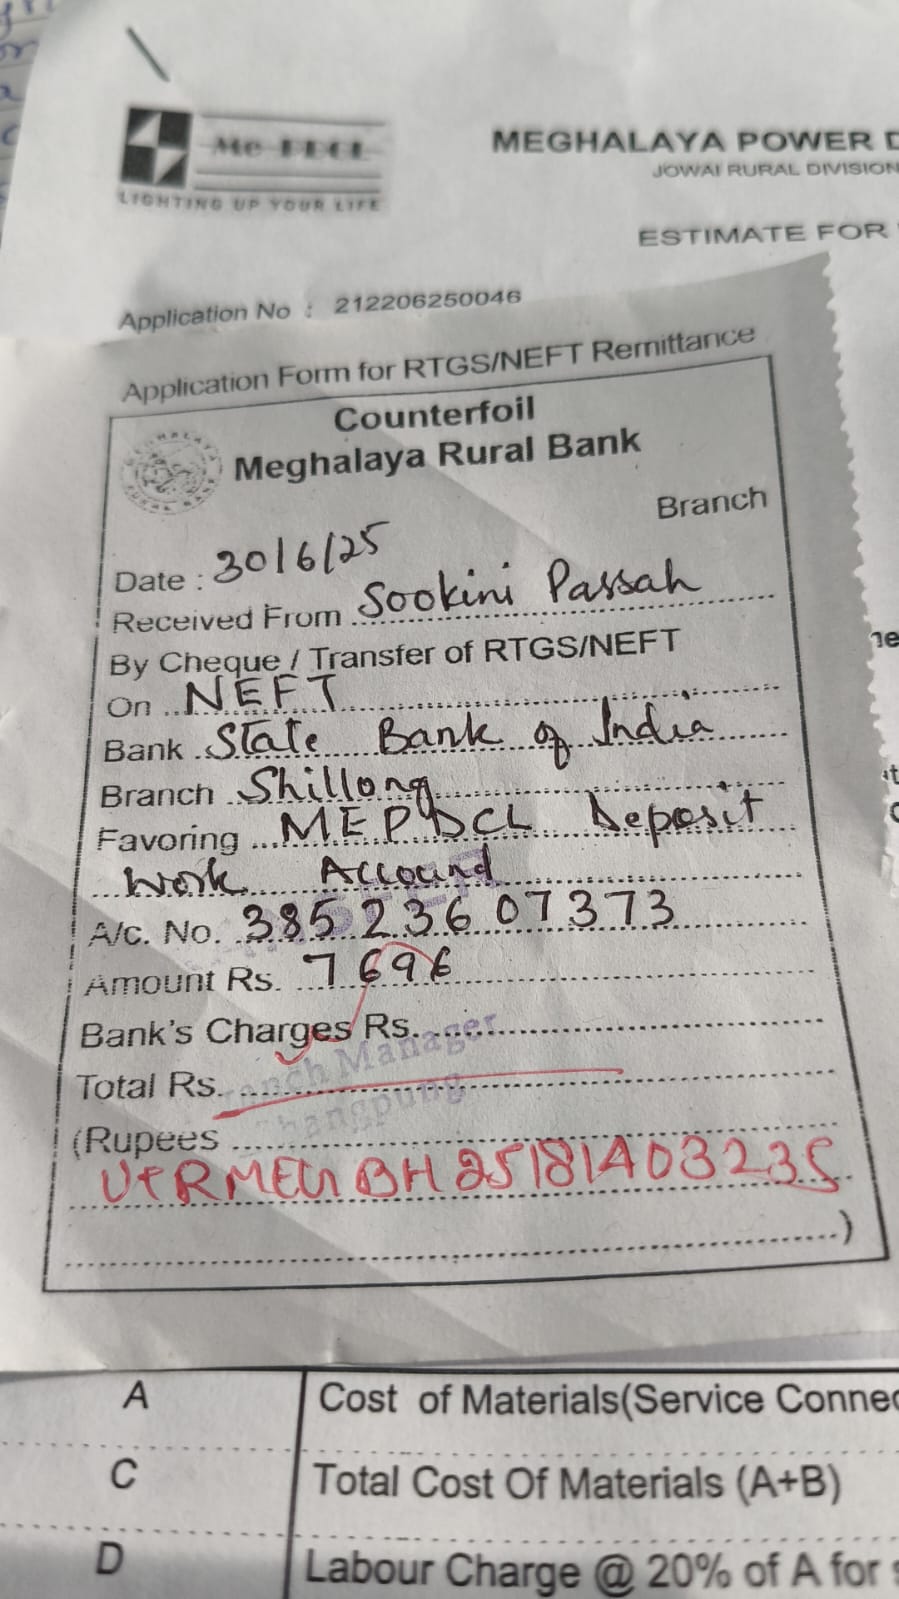 Me ECL
LIGHTING UP YOUR LIFE
MEGHALAYA POWER D
JOWAI RURAL DIVISION
ESTIMATE FOR
Application No : 212206250046
Application Form for RTGS/NEFT Remittance
Counterfoil
Meghalaya Rural Bank
Branch
Date : 30/6/25
Received From Sookini Passah
By Cheque / Transfer of RTGS/NEFT
On NEFT
Bank State Bank of India
Branch Shillong
Favoring MEPDCL Deposit
Work Accound
A/c. No. 38523607373
Amount Rs. 7696
Bank's Charges Rs.
Branch Manager
Total Rs.
hangpung
(Rupees
UTRMEGBH25181403235
)
A Cost of Materials(Service Connec
C Total Cost Of Materials (A+B)
D Labour Charge @ 20% of A for s